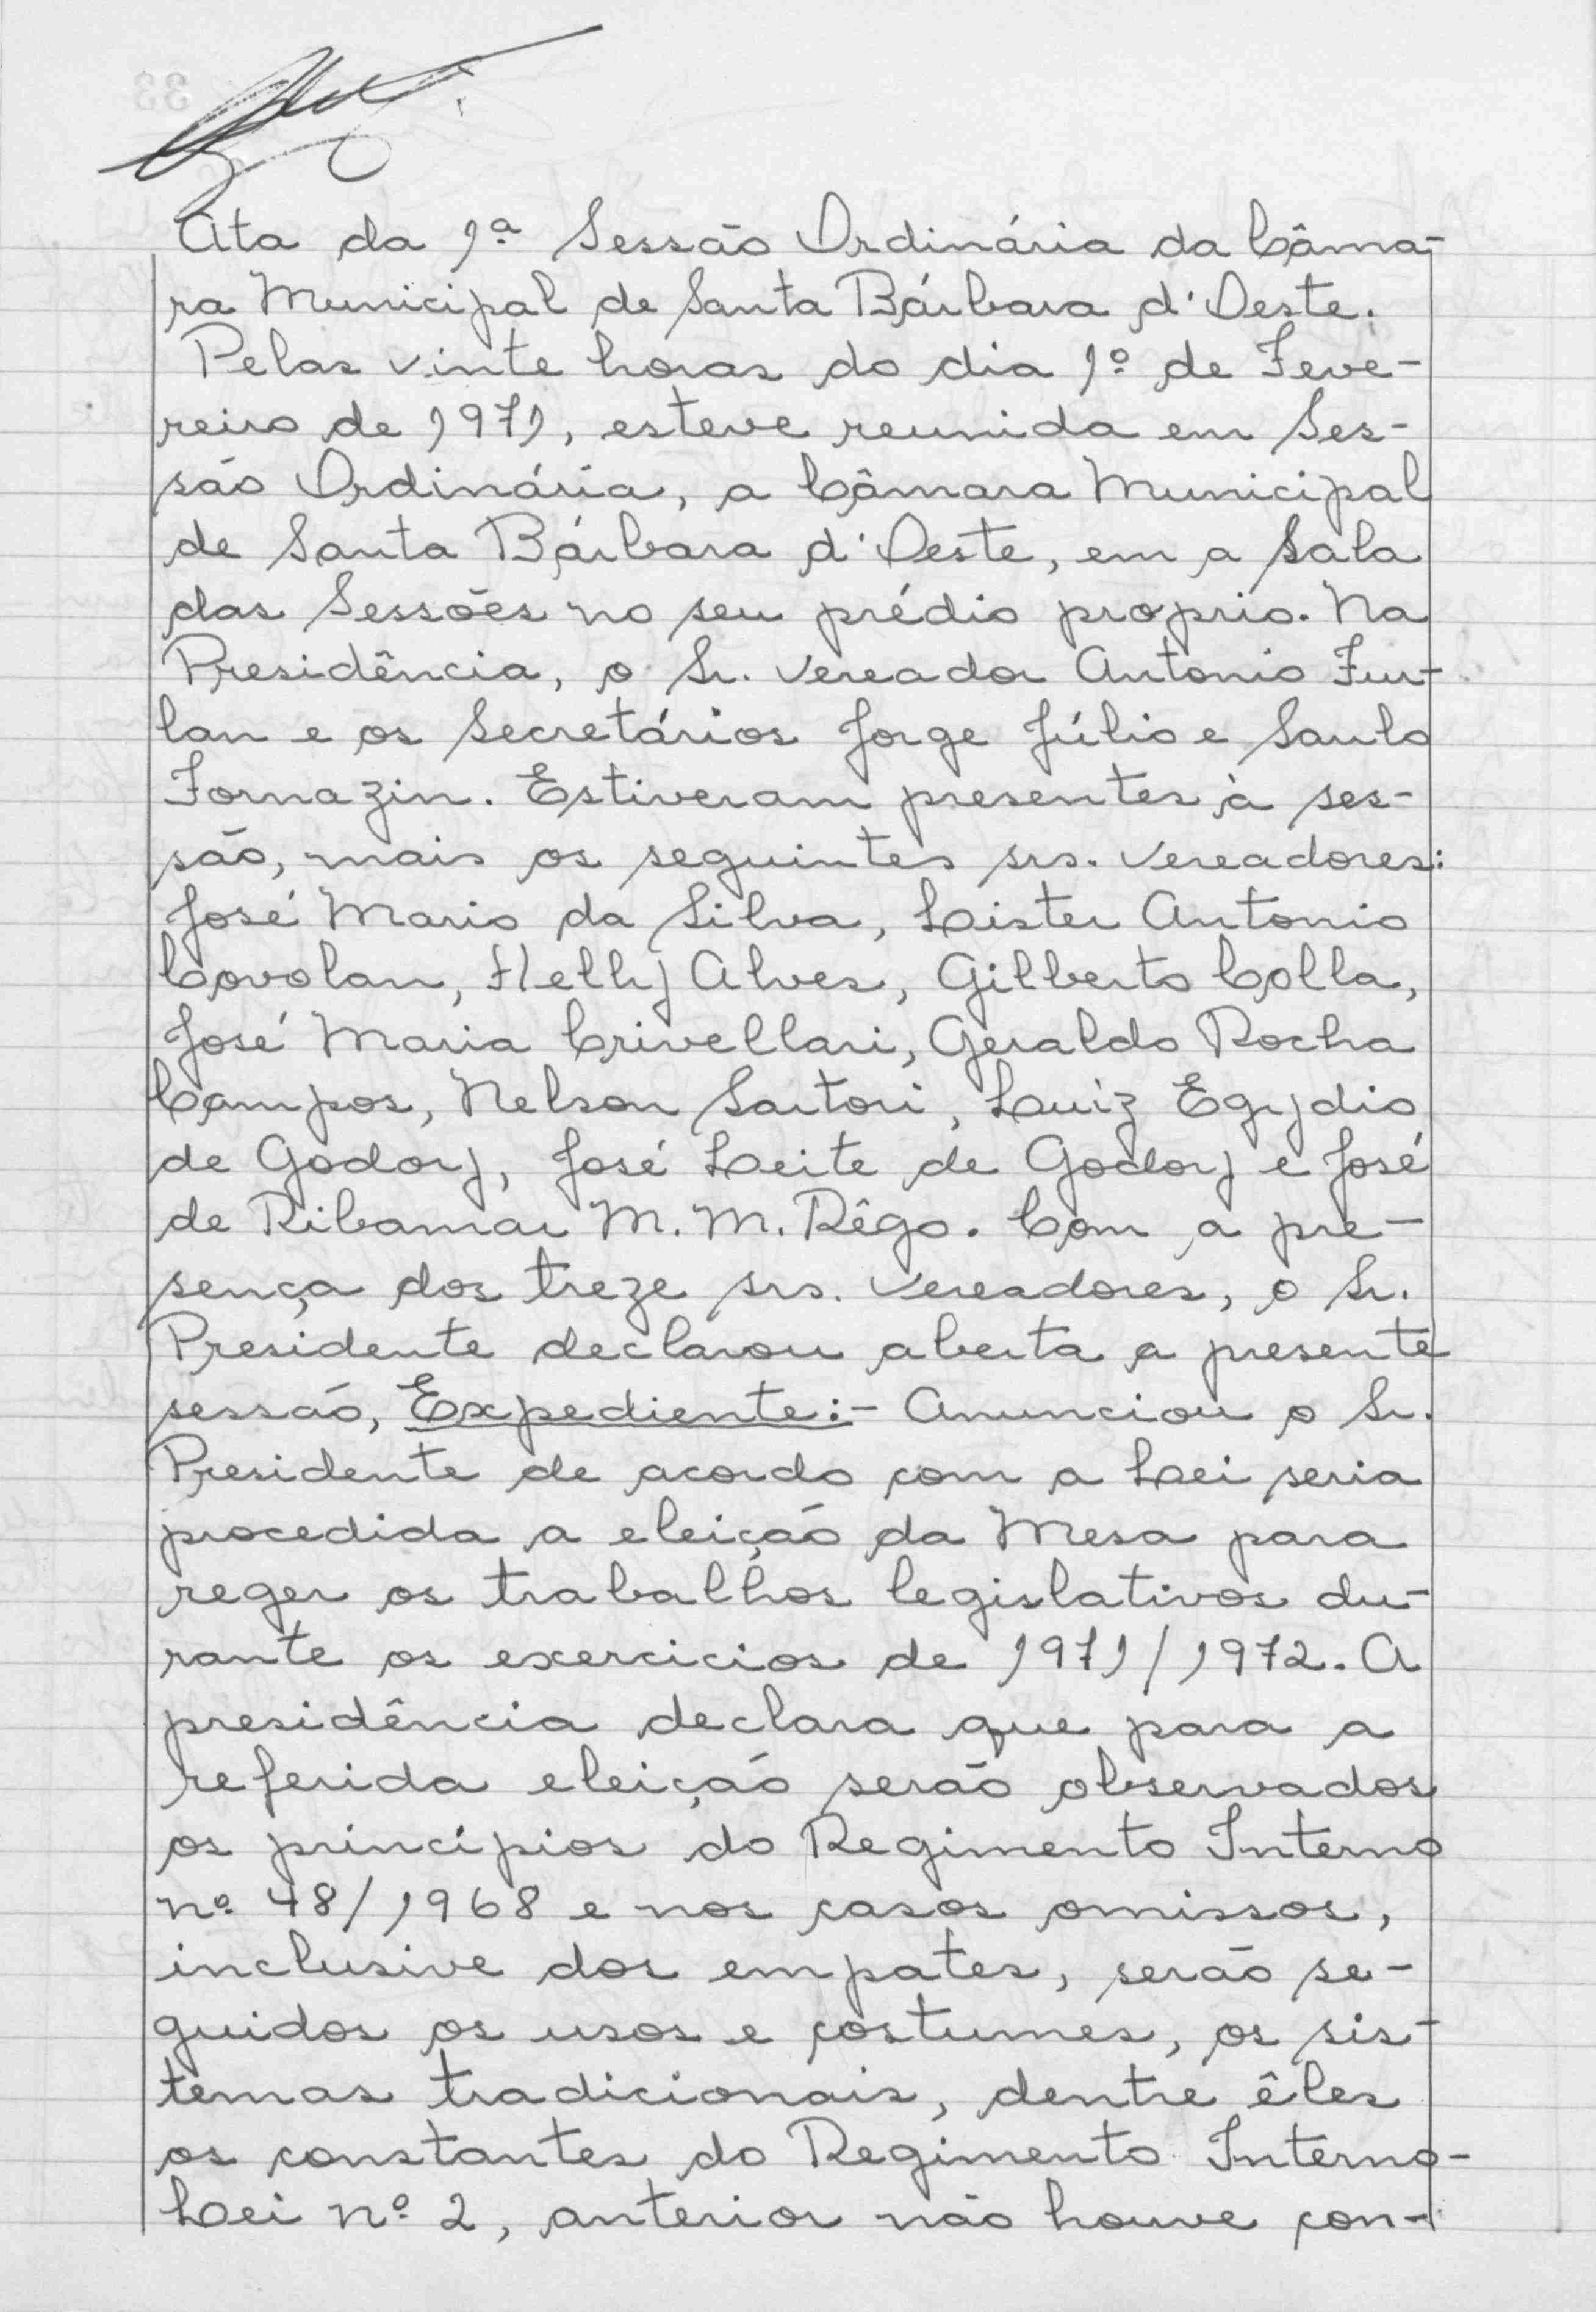 Ata da 1ª Sessão Ordinária da Câma-
ra Municipal de Santa Bárbara d'Oeste.
Pelas vinte horas do dia 1º de Feve-
reiro de 1971, esteve reunida em Ses-
são Ordinária, a Câmara Municipal
de Santa Bárbara d'Oeste, em a Sala
das Sessões no seu prédio proprio. Na
Presidência, o Sr. Vereador Antonio Fur-
lan e os Secretários Jorge Júlio e Saulo
Fornazin. Estiveram presentes à ses-
são, mais os seguintes srs. Vereadores:
José Mario da Silva, Lister Antonio
Covolan, Helly Alves, Gilberto Colla,
José Maria Crivellari, Geraldo Rocha
Campos, Nelson Sartori, Luiz Egydio
de Godoy, José Leite de Godoy e José
de Ribamar M. M. Rêgo. Com a pre-
sença dos treze srs. Vereadores, o Sr.
Presidente declarou aberta a presente
sessão, Expediente:- Anunciou o Sr.
Presidente de acordo com a Lei seria
procedida a eleição da Mesa para
reger os trabalhos legislativos du-
rante os exercicios de 1971/1972. A
presidência declara que para a
referida eleição serão observados
os princípios do Regimento Interno
nº 48/1968 e nos casos omissos,
inclusive dos empates, serão se-
guidos os usos e costumes, os sis-
temas tradicionais, dentre êles
os constantes do Regimento Interno-
Lei nº 2, anterior não houve con-